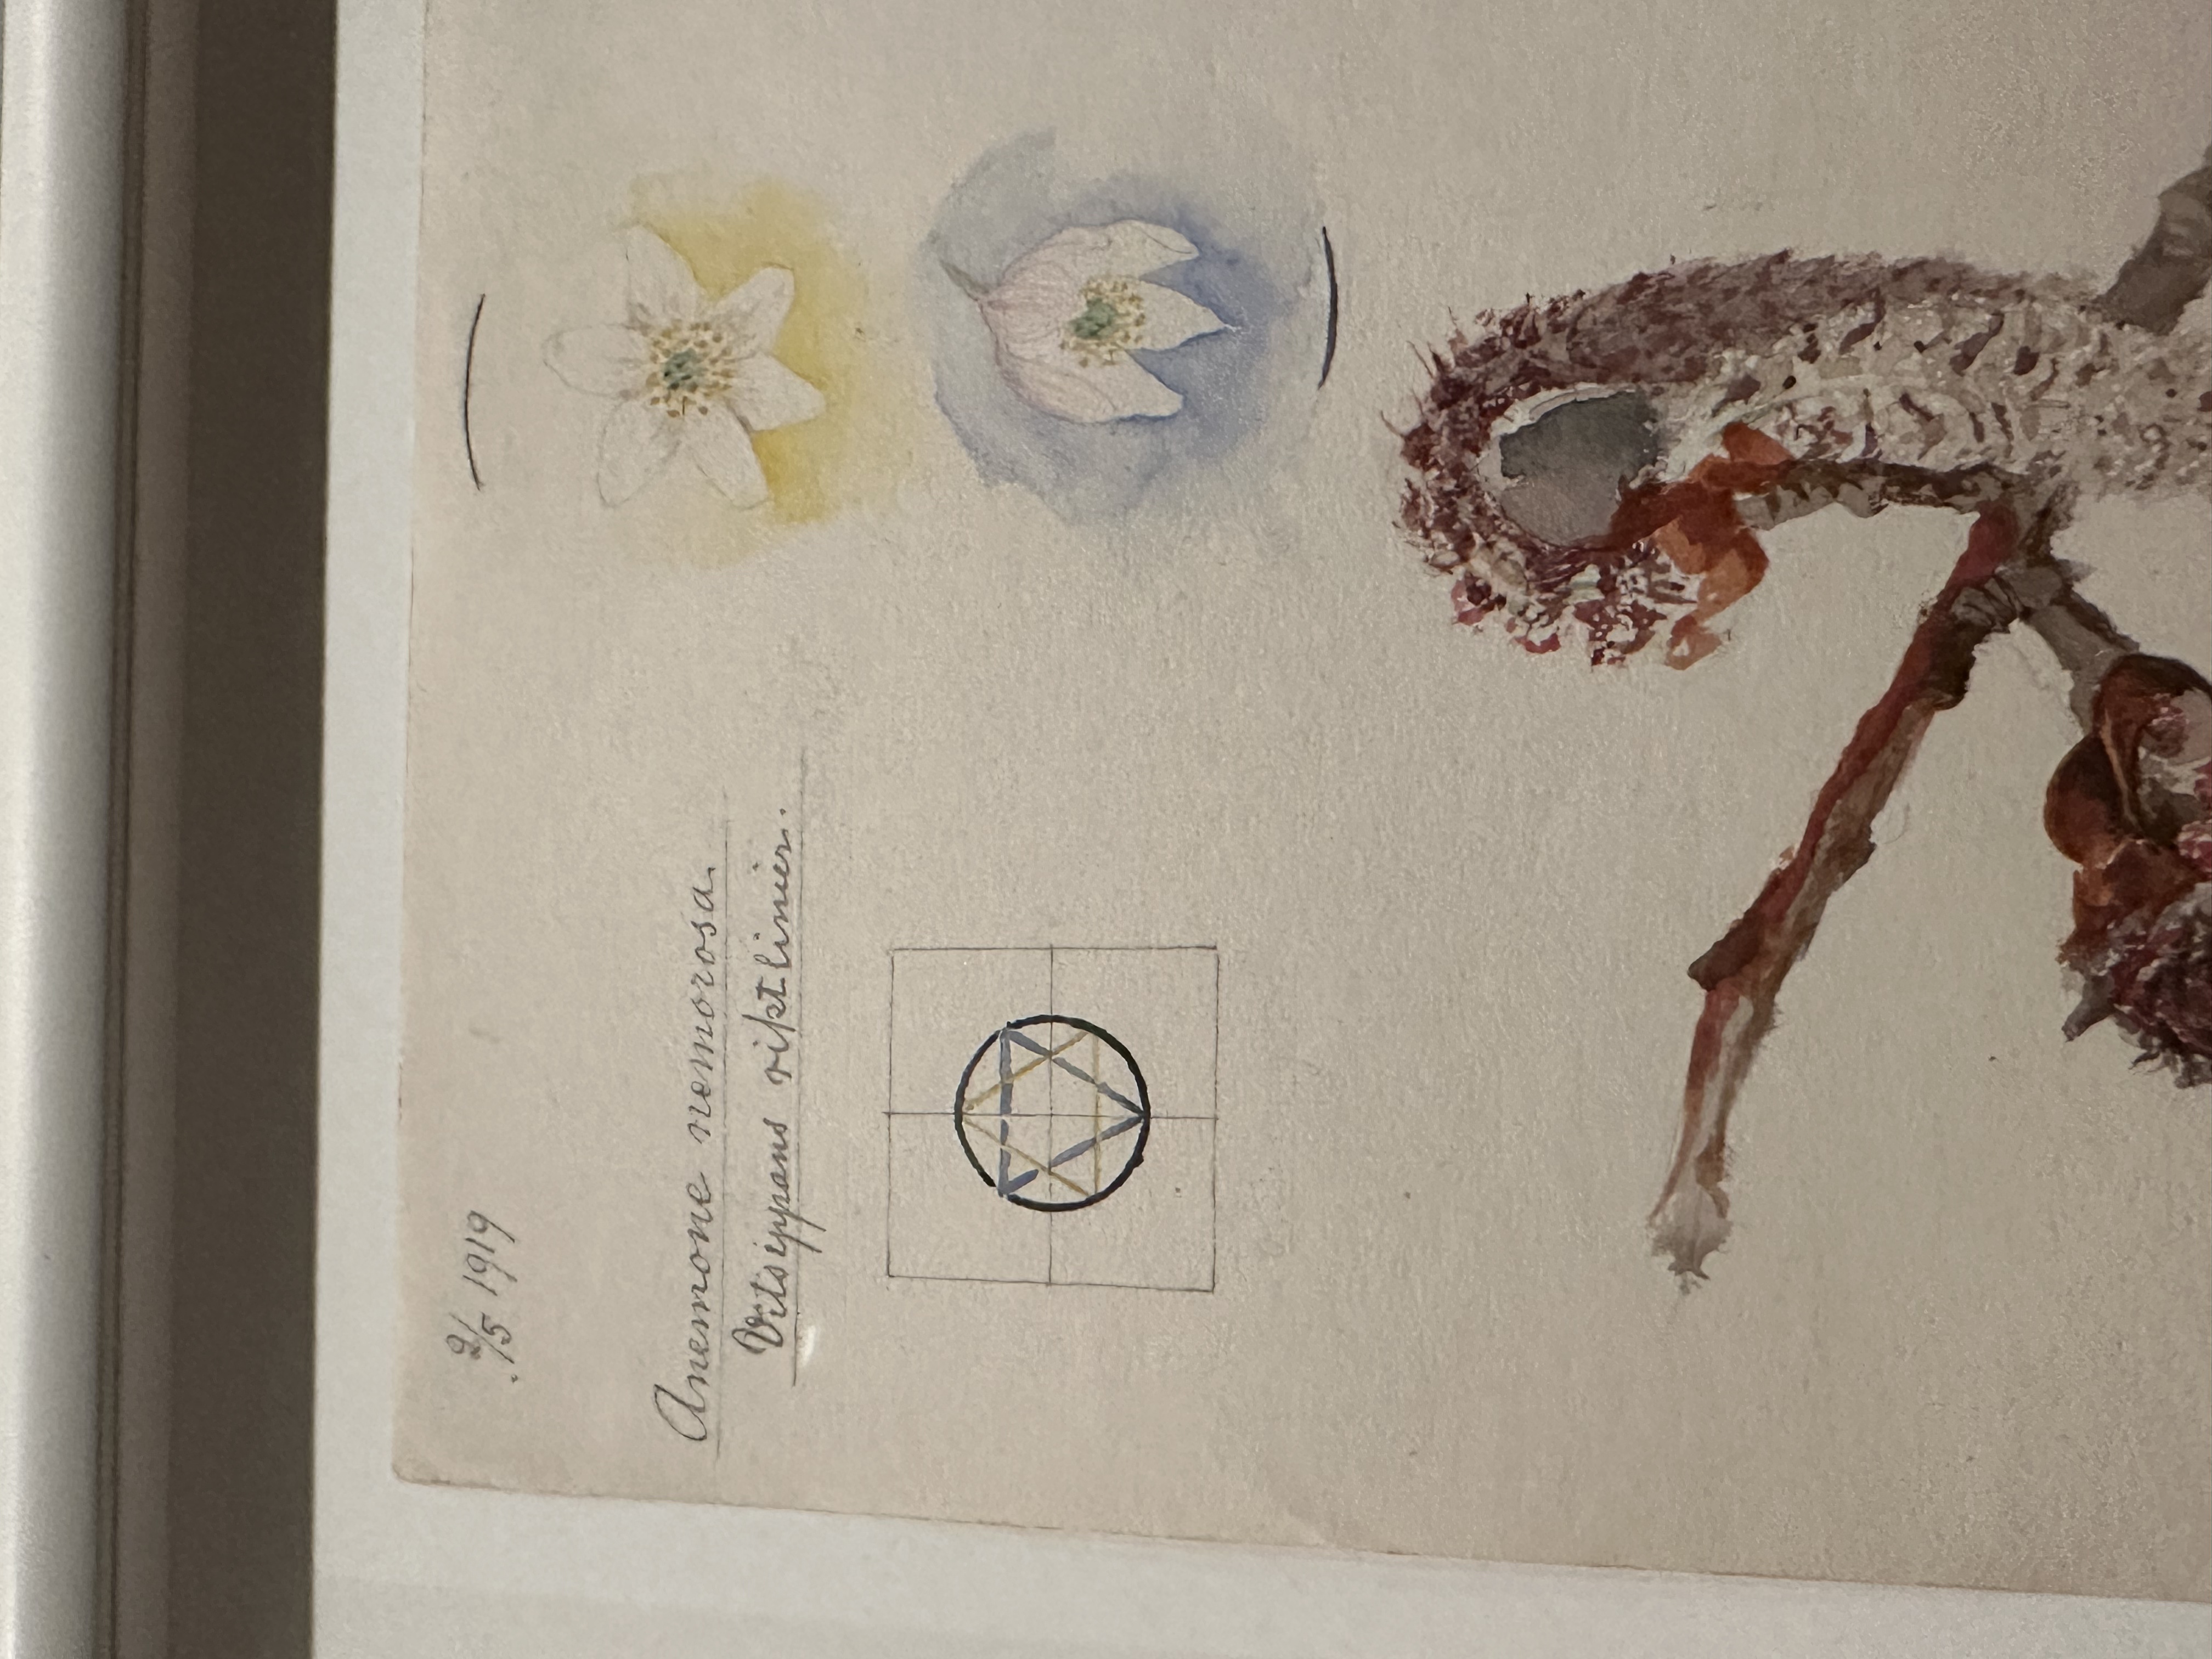 9/5 1919
Anemone nemorosa.
Vitsippans riktlinier.